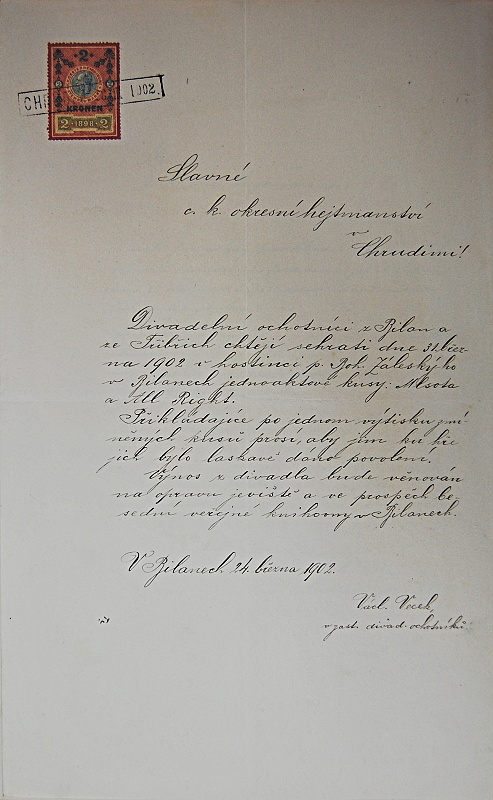 2
KRONEN
2 1898 2
1902.
Slavné
c. k. okresní hejtmanství
v
Chrudimi!
Divadelní ochotníci z Bílan a
ze Třibřich chtějí sehrati dne 31. břez-
na 1902 v hostinci p. Boh. Záleského
v Bílanech jednoaktové kusy: Mlsota
a All Right.
Přikládajíce po jednom výtisku zmí-
něných kusů prosí, aby jim ku hře
jich bylo laskavě dáno povolení.
Výnos z divadla bude věnován
na opravu jeviště a ve prospěch be-
sední veřejné knihovny v Bílanech.
V Bílanech 24. března 1902.
Václ.
v zast. divad. ochotníků.